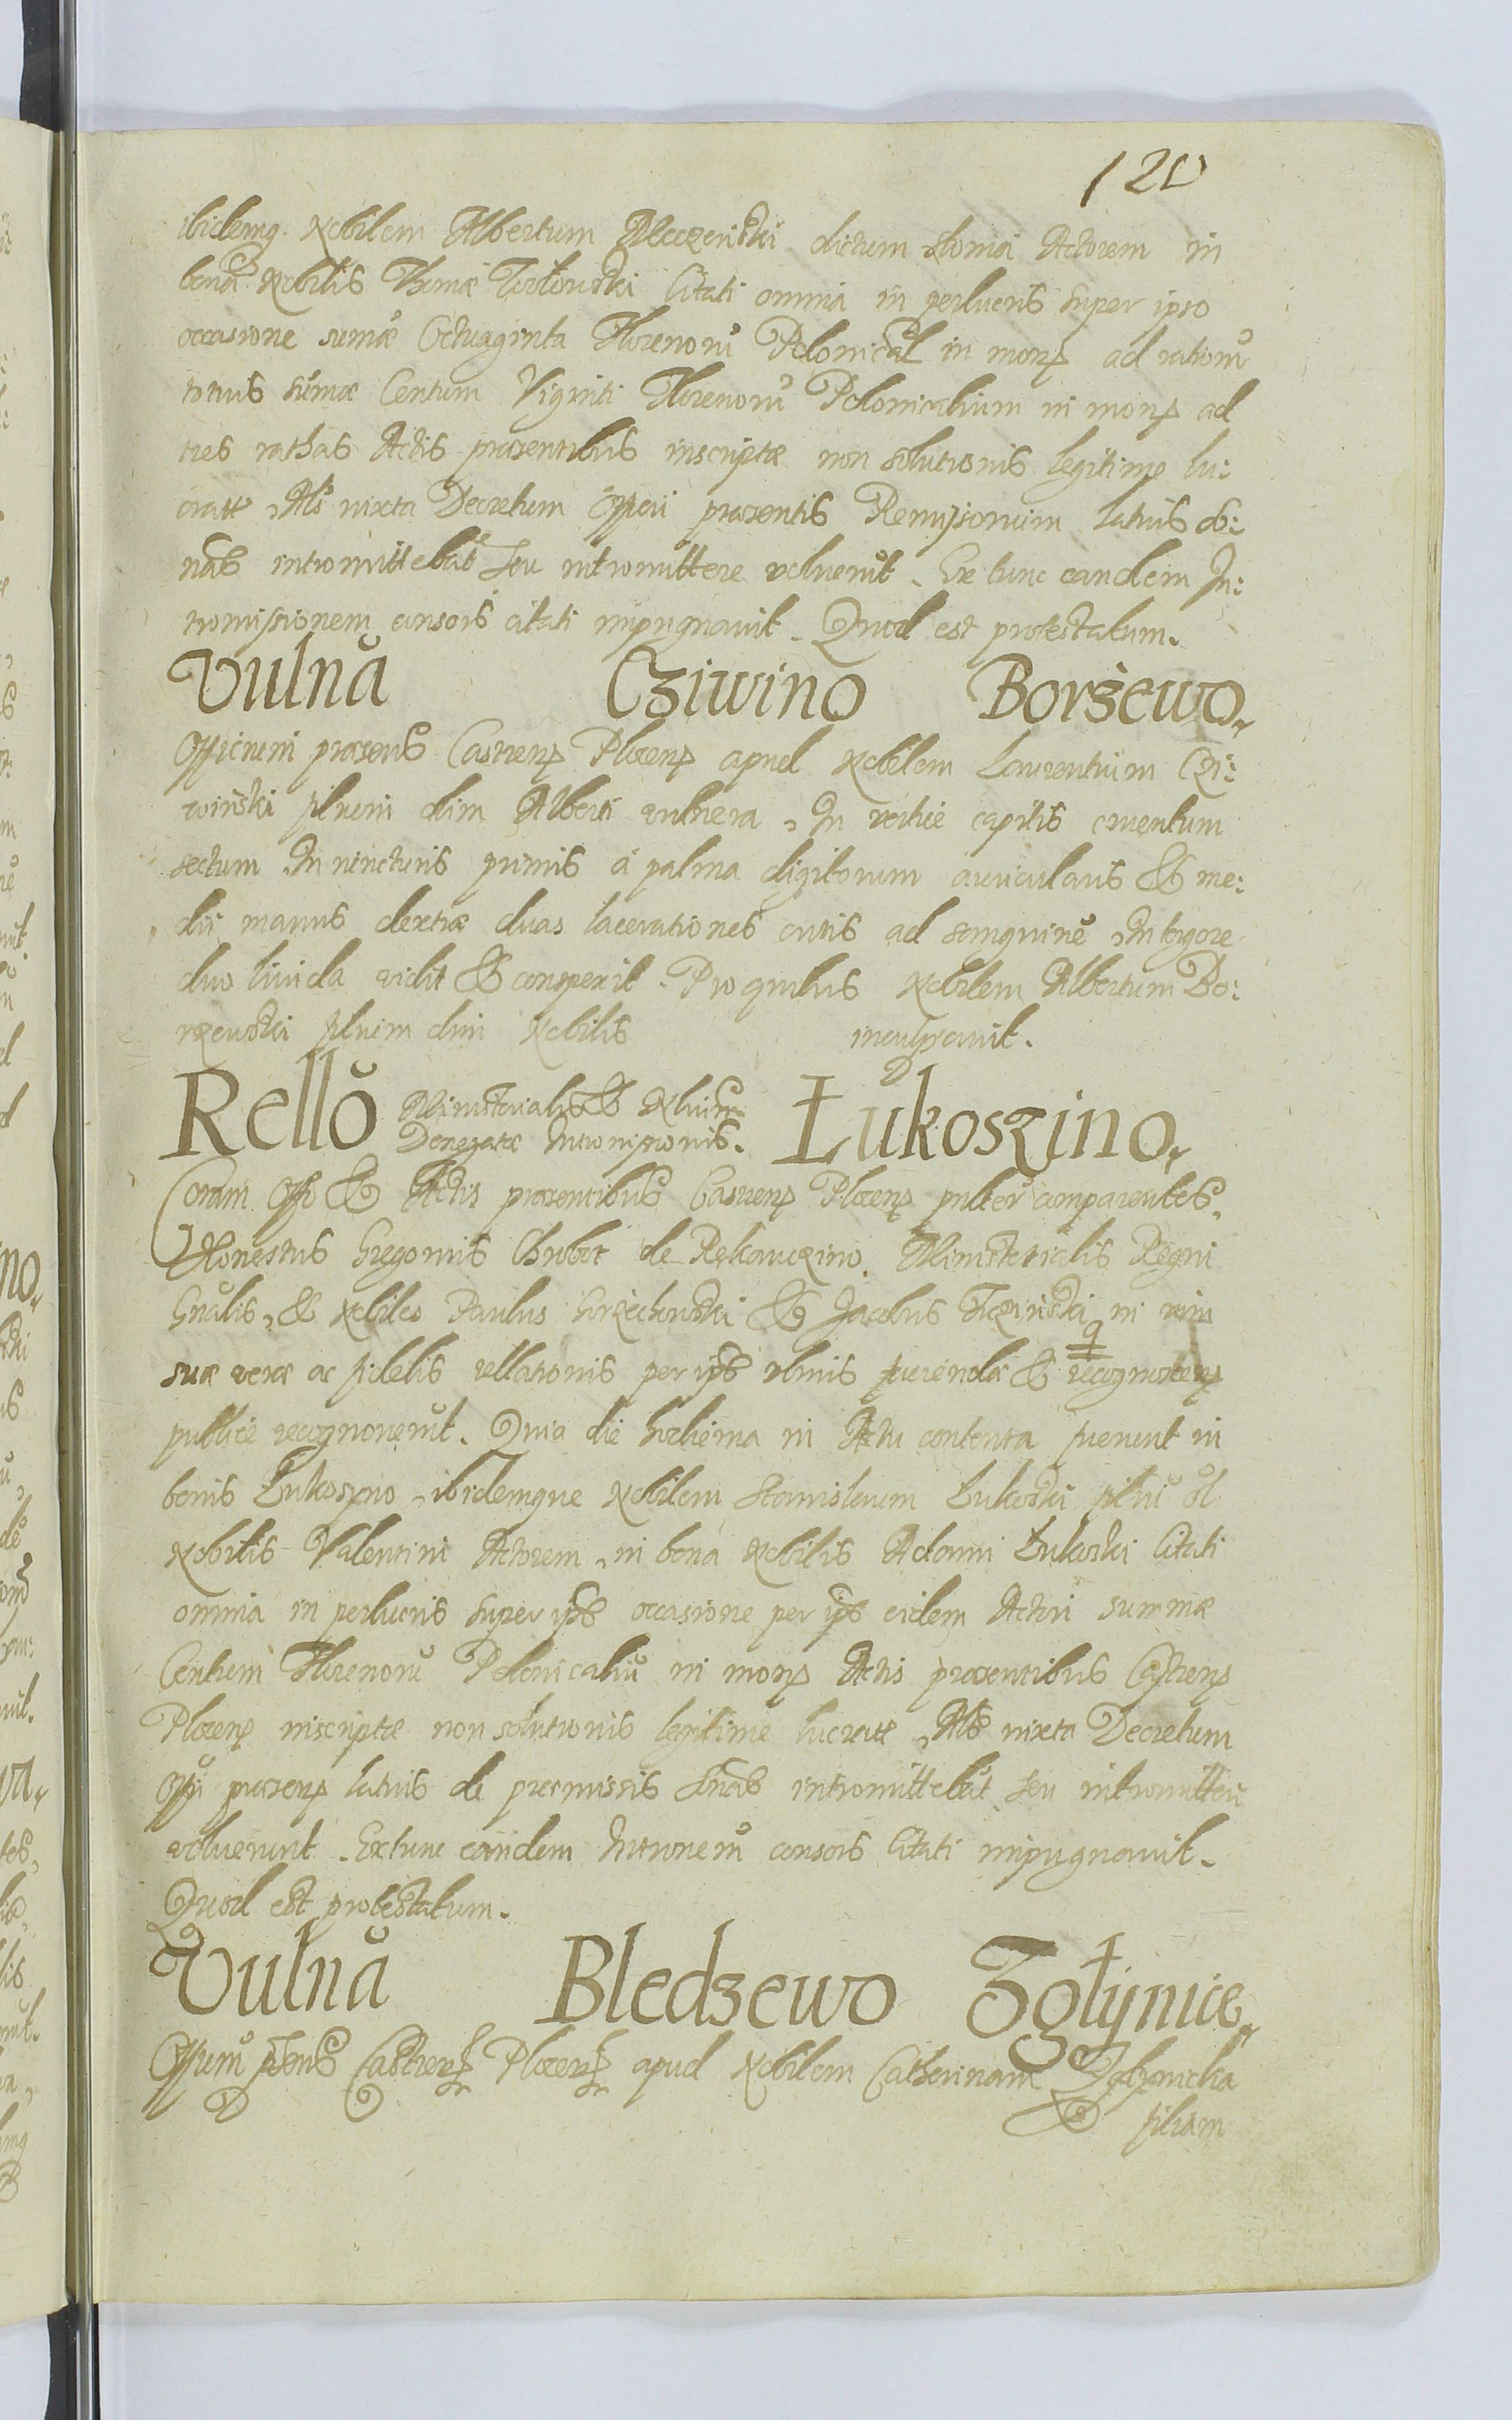 120
ibidemq. Nobilem Albertum Meczenski dictum Sloma Actorem in
bona Nobilis Thomæ Turłowski Citati omnia in perlucris super ipso
occasione sumæ Octuaginta Florenorũ Polonical in mon ad rationẽ
totius sumæ Centum Viginti Florenorũ Polonicalium in mon ad
tres rathas Actis præsentibus inscriptæ non solutionis legitime lu:
cratæ, Als iuxta Decretum Officii præsentis Remissorium latius ob:
nãs intromittebãt seu intromittere voluerũt. Ex tunc eandem In:
tromissionem consors citati impugnavit. Quod est protestatum.
Vulnã Cziwino Borżewo.
Officium præsens Castren Plocen apud Nobilem Laurentium Czi:
winski filium olim Alberti vulnera, In vertice capitis cruentum
sectum. In iuncturis primis á palma digitorum auricularis & me:
dii manus dextræ duas lacerationes cutis ad sanguinẽ, In tergore
duo livida vidit & conspexit. Pro quibus Nobilem Albertum Bo:
rzewski filium olim Nobilis inculpavit.
Rellõ Ministerialis & Nbiliũ Denegatæ Intromissionis. Łukoszino.
Coram Offo & Actis præsentibus Castren Plocen pnlter comparentes,
Honestus Gregorius Chobot de Rekawczino, Ministerialis Regni
Gnãlis, & Nobiles Paulus Gorzechowski & Jacobus Ticzinski in vim
suæ veræ ac fidelis rellationis per ipõs ulmis faciendæ & recognoscen
publice recognoverũt. Quia die hodierna in Actu contenta fuerunt in
bonis Łukoszyno, ibidemque Nobilem Stanislaum Łukoski filiũ ol
Nobilis Valentini Actorem, in bona Nobilis Adami Łukoski Citati
omnia in perlucris super ipõ occasione per ipõ eidem Actori summæ
Centum Florenorũ Polonicaliũ in mon Actis præsentibus Castren
Plocen inscriptæ non solutionis legitime lucratæ, Als iuxta Decretum
Offi præsen latius de præmissis sonãs intromittebãt seu intromitterẽ
voluerunt. Extunc eandem Intronem consors Citati impugnavit.
Quod est protestatum.
Vulnã Bledzewo Zgłynice.
Offium pñs Castren Plocen apud Nobilem Catherinam Zglynicka
filiam